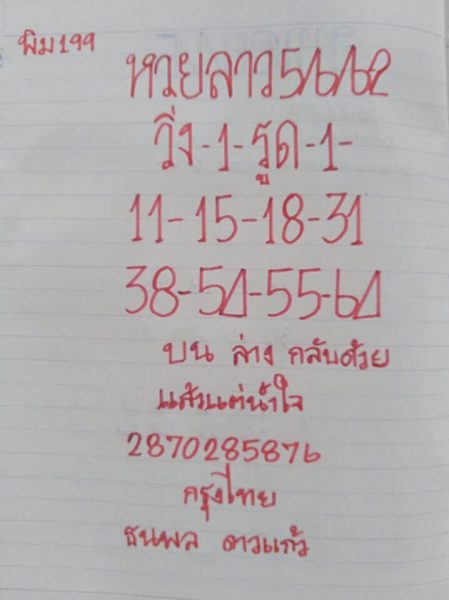 พิม199
หวยลาว5/6/62
วิ่ง-1-รูด-1-
11-15-18-31
38-51-55-61
บน ล่าง กลับด้วย
แล้วแต่น้ำใจ
2870285876
กรุงไทย
ธนพล ดาวแก้ว